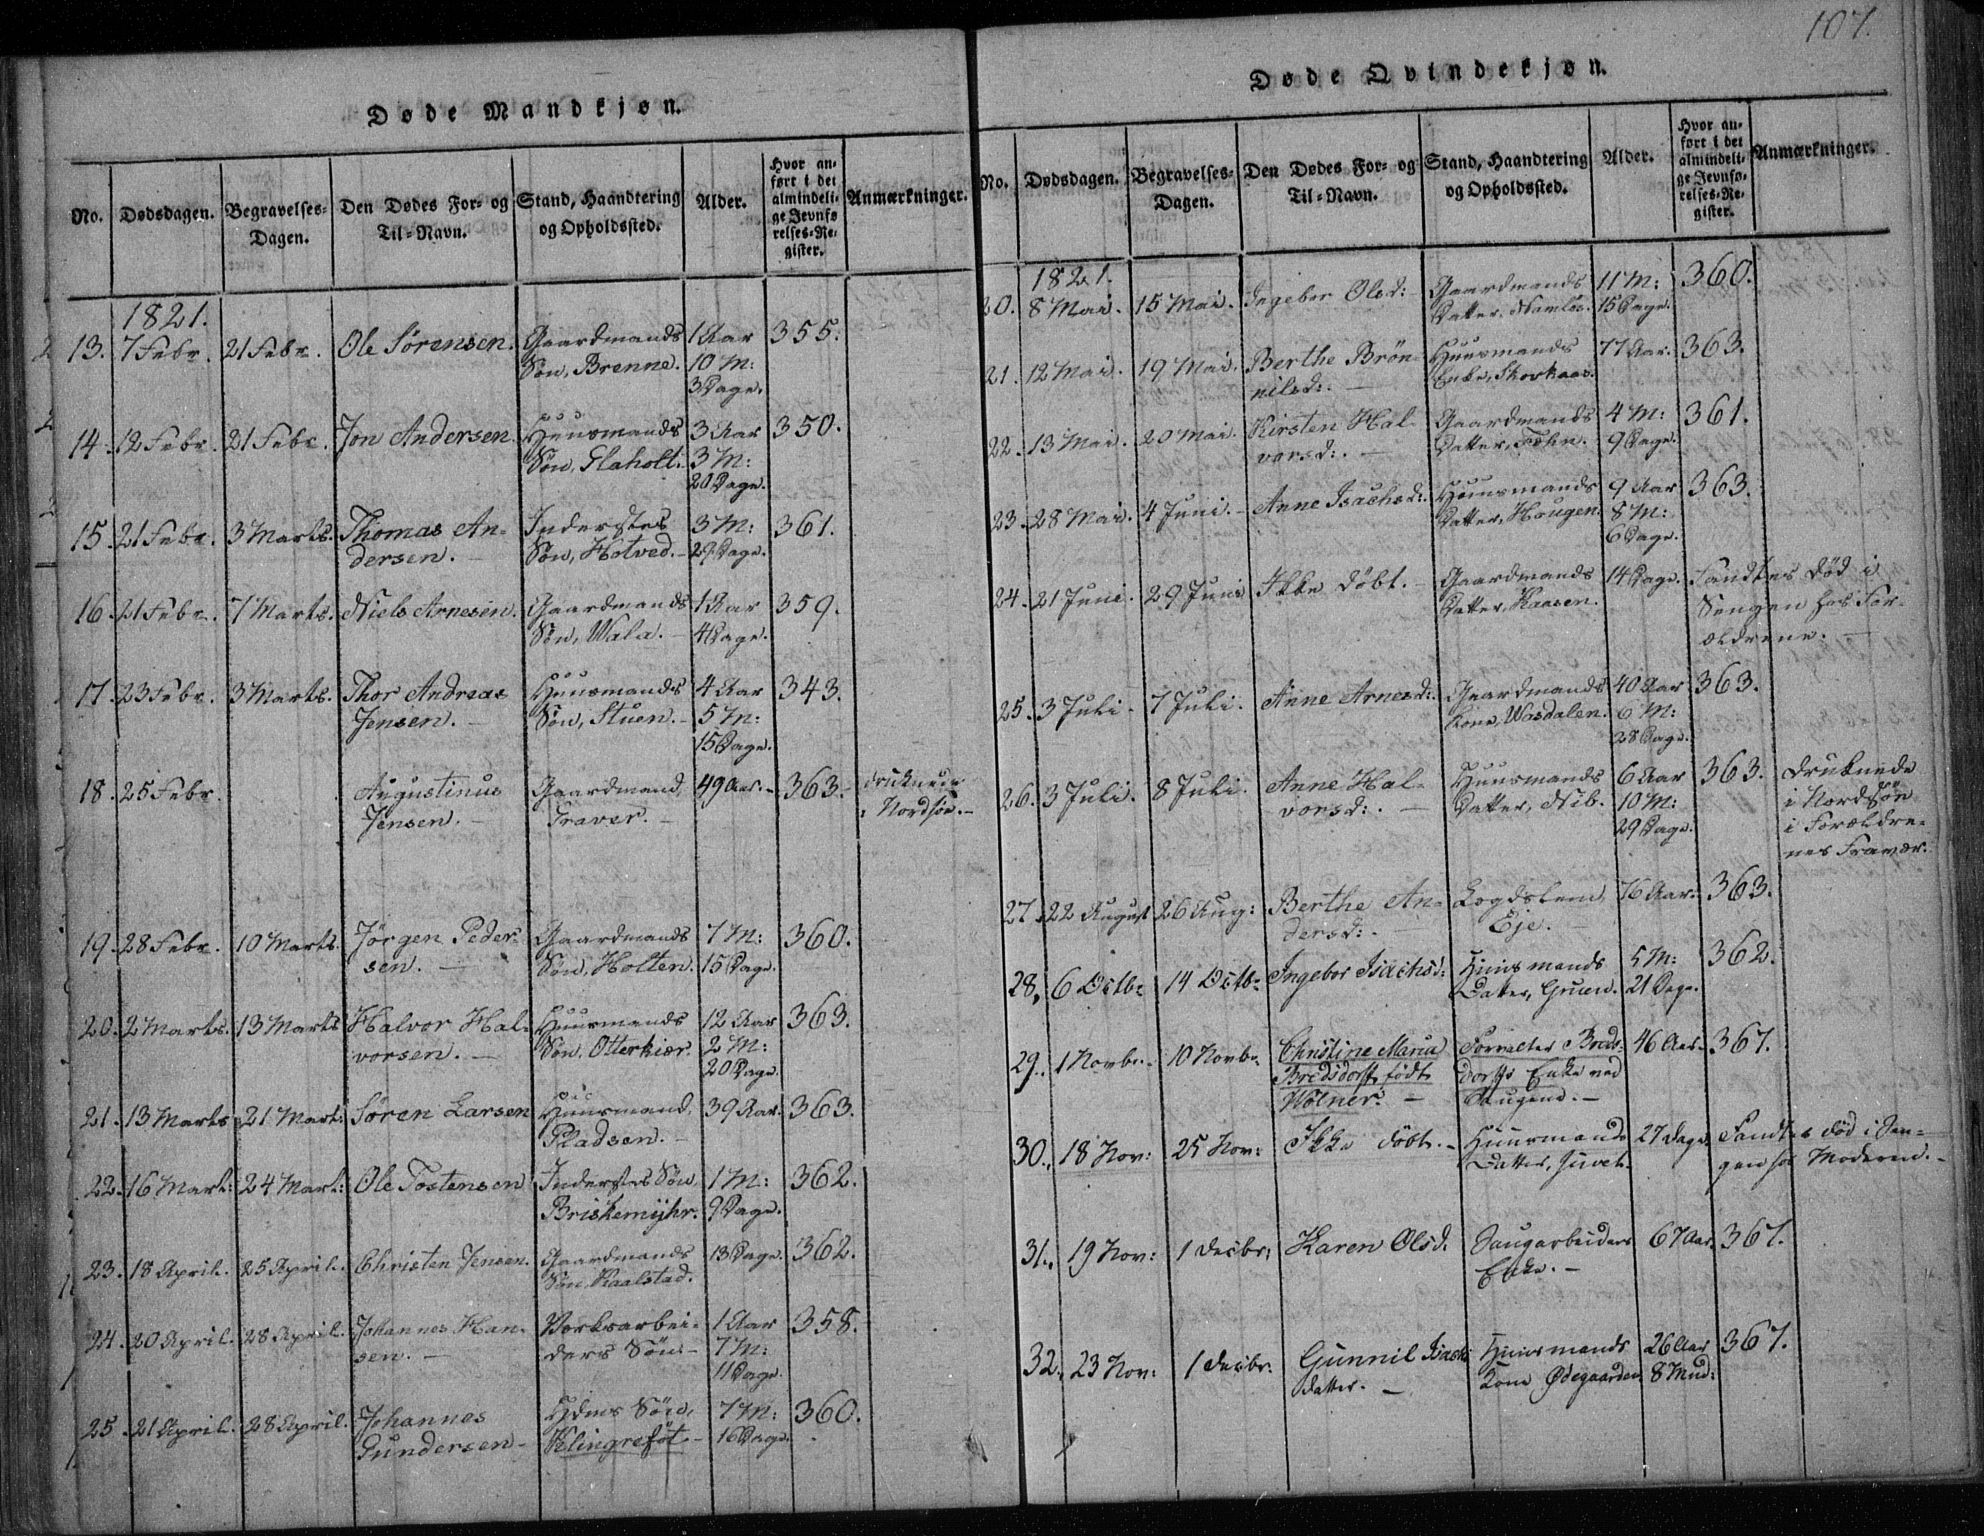 107.
Døde Mandkjøn.
No.
Dødsdagen.
Begravelses-
Dagen.
Den Dødes For- og
Til-Navn.
Stand, Haandtering
og Opholdssted.
Alder.
Hvor an-
ført i det
almindeli-
ge Jevnfø
relses-Re-
gister.
Anmærkninger.
1821.
13. 7 Febr. 21 Febr. Ole Sörensen. Gaardmands 1 Aar 355.
Søn, Brenne. 10 M:
3 Dage.
14. 12 Febr. 21 Febr. Jon Andersen. Huusmands 3 Aar 350.
Søn, Flaholt. 3 M:
20 Dage.
15. 21 Febr. 3 Marts. Thomas An- Inderstes 3 M: 361.
dersen. Søn, Hotved. 29 Dage.
16. 21 Febr. 7 Marts. Niels Arnesen. Gaardmands 1 Aar 359.
Søn, Wala. 4 Dage.
17. 23 Febr. 3 Marts. Thor Andreas Huusmands 4 Aar 343.
Jensen. Søn, Stuen. 5 M:
15 Dage.
18. 25 Febr. Augustinus Gaardmand, 49 Aar. 363. druknede
Jensen. Traver. i Nordsiø.
19. 28 Febr. 10 Marts. Jörgen Peder- Gaardmands 7 M: 360.
sen. Søn, Holten. 15 Dage.
20. 2 Marts. 13 Marts Halvor Hal- Huusmands 12 Aar 363.
vorsen. Søn, Otterkiær. 2 M:
20 Dage
21. 13 Marts 21 Mart: Sören Larsen Huusmand, 39 Aar. 363.
Pladsen.
22. 16 Mart: 24 Mart: Ole Tostensen Inderstes Søn, 1 M: 362.
Briskemyhr. 9 Dage.
23. 18 April. 25 April. Christen Jensen. Gaardmands 13 Dage. 362.
Søn, Kaalstad.
24. 20 April. 28 April. Johannes Han- Verksarbei- 1 Aar 358.
sen. ders Søn. 7 M:
11 Dage.
25. 21 April. 28 April. Johannes Hdms Søn, 7 M: 360.
Gundersen Klingreföt 16 Dage.
Døde Qvindekjøn.
No.
Dødsdagen.
Begravelses-
Dagen.
Den Dødes For- og
Til-Navn.
Stand, Haandtering
og Opholdssted.
Alder.
Hvor an-
ført i det
almindeli-
ge Jevnfø-
relses-Re-
gister.
Anmærkninger.
1821.
20. 8 Mai. 15 Mai. Ingebor Olsd: Gaardmands 11 M: 360.
Datter, Namløs. 15 Dage.
21. 12 Mai. 19 Mai. Berthe Brön- Huusmands 77 Aar. 363.
nilsd: Enke, Skorkaas.
22. 13 Mai. 20 Mai. Kirsten Hal- Gaardmands 4 M: 361.
vorsd: Datter, Fæhn. 9 Dage.
23. 28 Mai. 4 Juni. Anne Isachsd: Huusmands 9 Aar 363.
Datter, Hougen. 8 M:
6 Dage.
24. 21 Juni. 29 Juni Ikke döbt. Gaardmands 14 Dage. Fandtes død i
Datter, Kaasen. Sengen hos For-
ældrene.
25. 3 Juli. 7 Juli. Anne Arnesd: Gaardmands 40 Aar 363.
Kone, Wasdalen. 6 M:
28 Dage.
26. 3 Juli. 8 Juli. Anne Hal- Huusmands 6 Aar 363. druknede
vorsd: Datter, Nib. 10 M: i Nordsøn
29 Dage. i Forældre-
nes Fravær.
27. 22 August 26 Aug: Berthe An- Logdslem 76 Aar. 363.
dersd: Eje.
28. 6 Octbr 14 Octbr Ingebor Isachsd: Huusmands 5 M: 362.
Datter, Gruen. 21 Dage.
29. 1 Novbr. 10 Novbr. Christine Maria Forvalter Breds- 46 Aar. 367.
Bredsdorff, födt dorffs Enke ved
Wölner. Saugene.
30. 18 Nov: 25 Nov: Ikke döbt. Huusmands 27 Dage Fandtes død i Sen-
Datter, Juvet. gen hos Moderen.
31. 19 Nov: 1 Decbr. Karen Olsd. Saugarbeiders 67 Aar. 367.
Enke.
32. 23 Nov: 1 Decbr. Gunnil Isachs Huusmands 26 Aar 367.
datter. Kone Ødegaarden 8 Mnd: